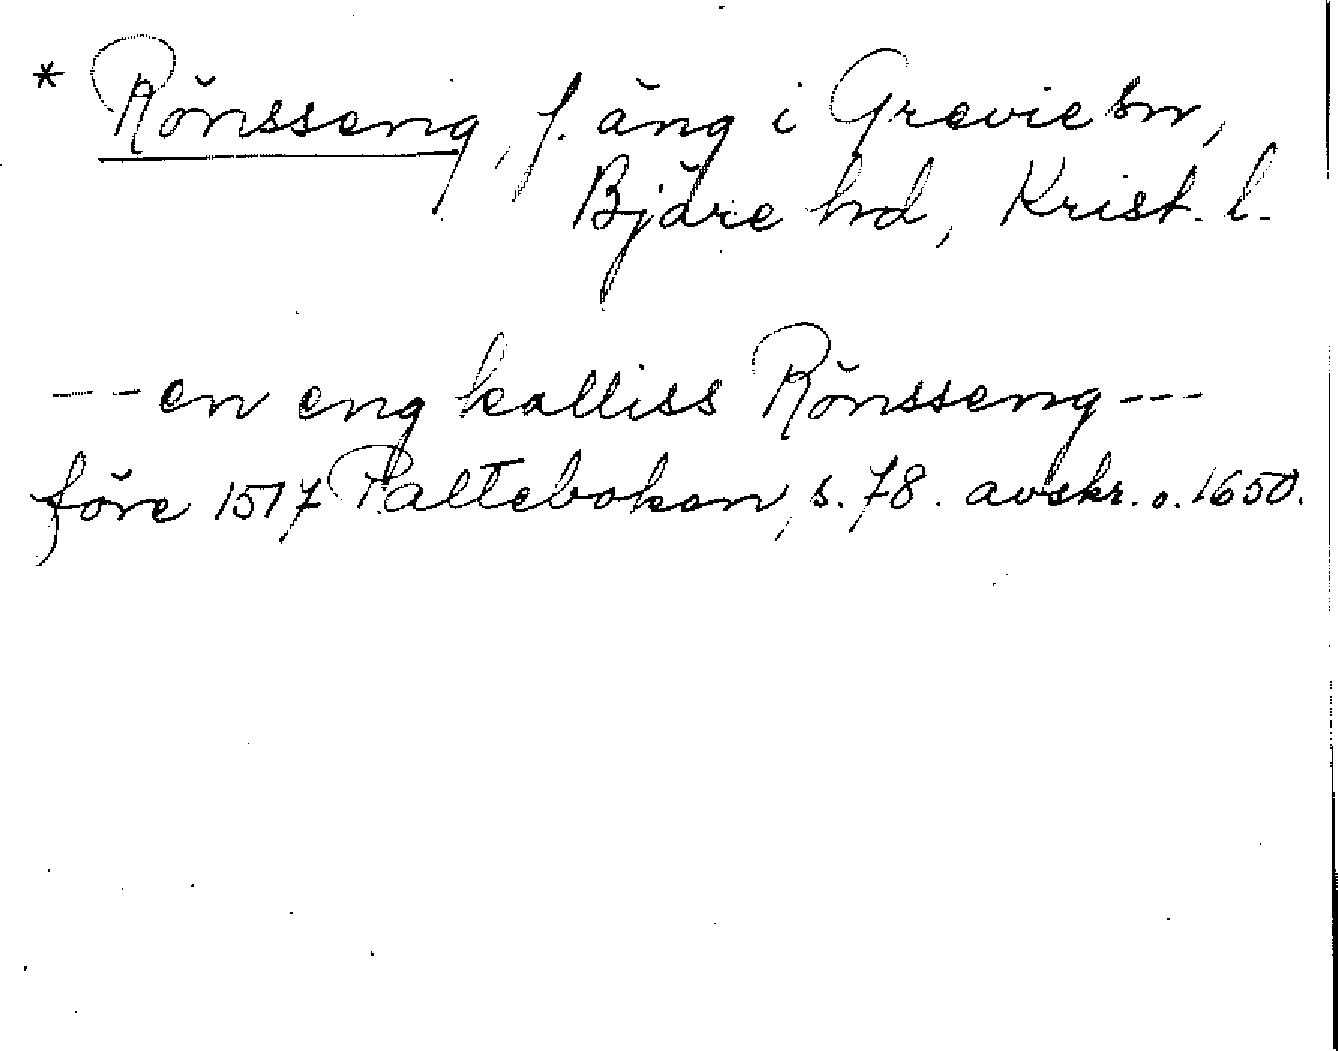 * Rönsseng, f. äng i Grevie sn,
Bjäre hd, Krist. l.
--- en eng kalliss Rönsseng ---
före 1517 Paltebokon, s. 78. avskr. o. 1650.